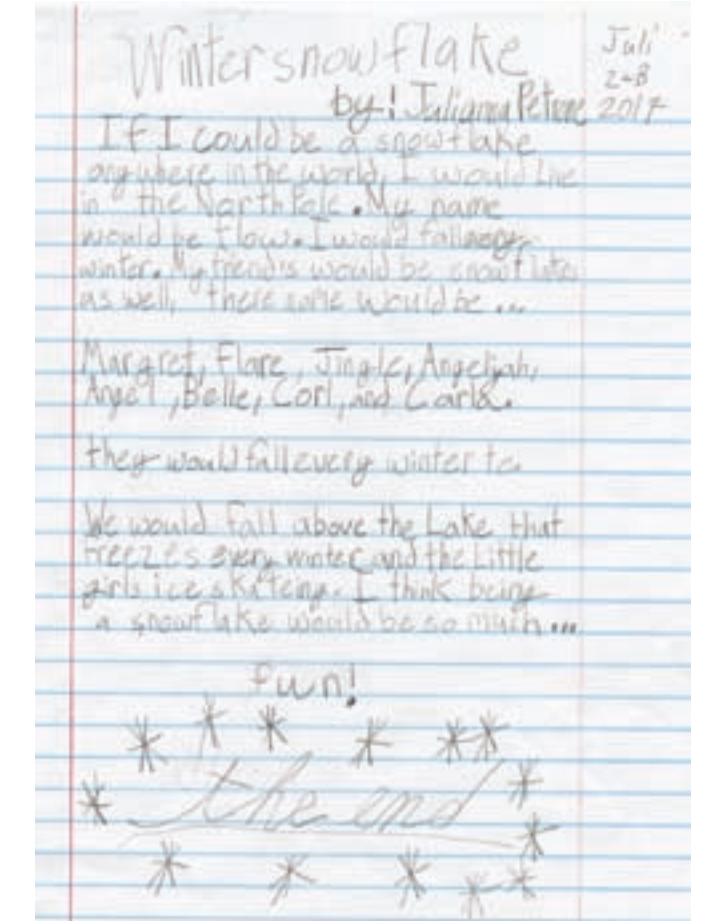 Winter snowflake
Juli
2-8
2017
by! Julianna Petrone
If I could be a snowflake
anywhere in the world, I would live
in the North Pole. My name
would be Flow. I would fall every
winter. My friends would be snowflakes
as well, there name would be ...
Margret, Flare, Jingle, Angelijah,
Angel, Belle, Corl, and Carla.
they would fall every winter to.
We would fall above the Lake that
freezes every winter and the Little
girls ice skateing. I think being
a snowflake would be so much ...
fun!
the end